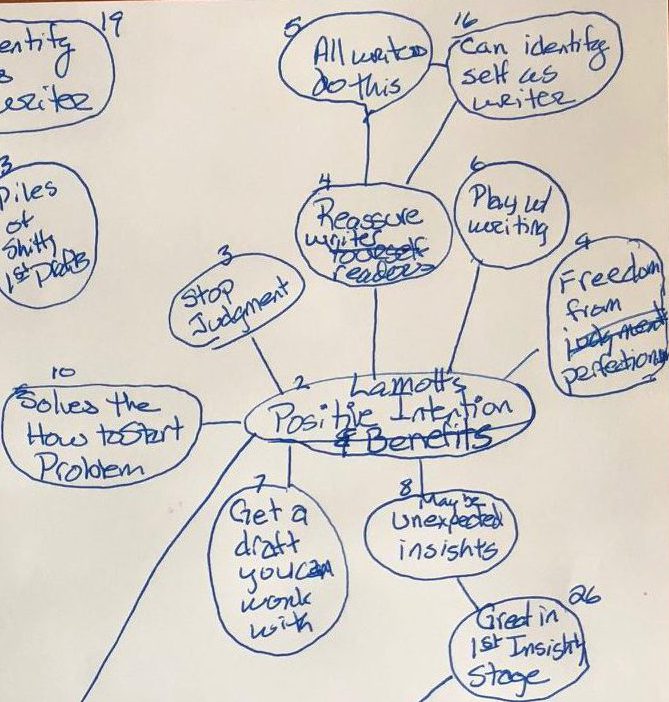 19
entify
writer
3
Piles
of
Shitty
1st Drafts
5
All writers
do this
16
Can identify
self as
writer
4
Reassure
writer
readers
6
Play w/
writing
3
Stop
Judgment
9
Freedom
from
judgment
perfection
10
Solves the
How to Start
Problem
2
Lamott's
Positive Intention
& Benefits
7
Get a
draft
you can
work
with
8
May be
unexpected
insights
26
Great in
1st Insight
Stage